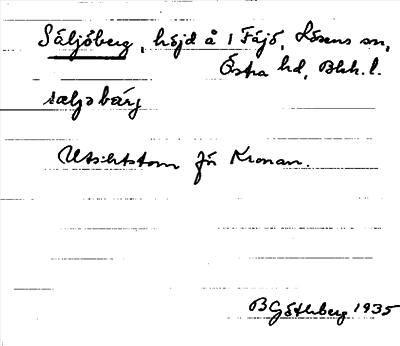 Säljöberg, höjd å 1 Fäjö, Lösens sn,
Östra hd, Blek. l.
sæljǝbärg
Utsiktstorn för Kronan.
B Göthberg 1935